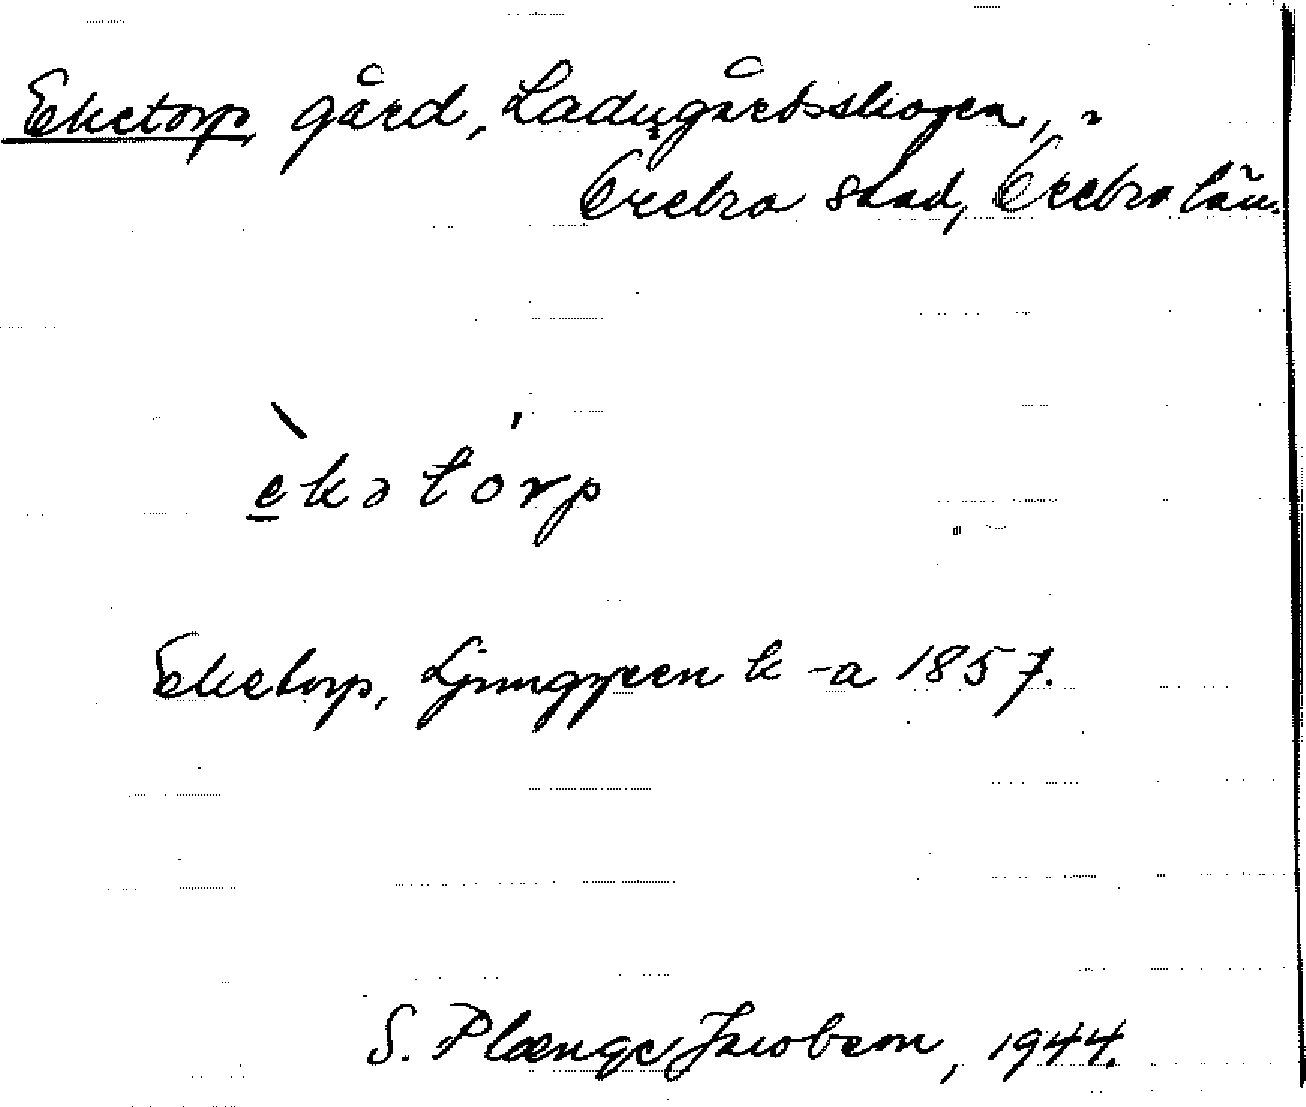 Eketorp gård, Ladugårdsskogen,
Örebro stad, Örebro län.
èkətórp
Eketorp, Ljunggren k-a 1857.
S. Plænge Jacobson, 1944.